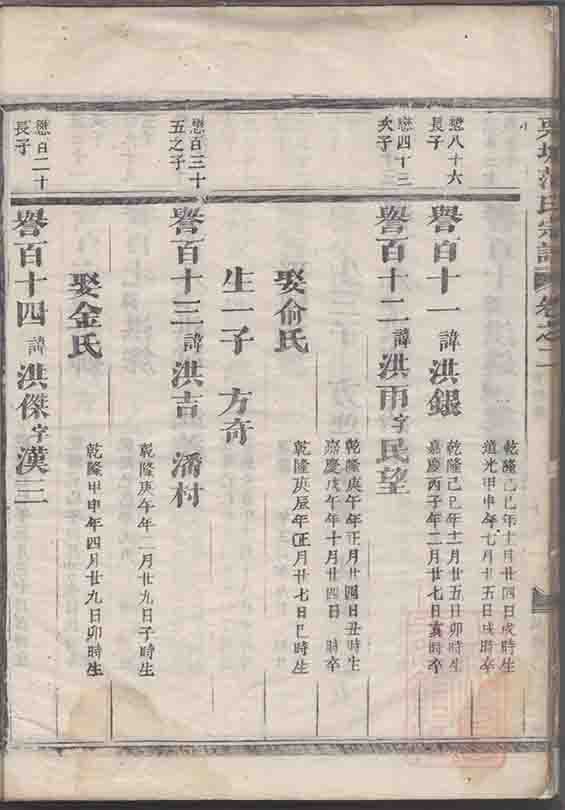 氏宗譜 卷之二
乾隆己巳年十月廿四日戌時生
道光甲申年七月廿五日戌時卒
懋八十六
長子
譽百十一 諱 洪銀
乾隆己巳年十二月廿五日卯時生
嘉慶丙子年二月廿七日亥時卒
懋四十三
次子
譽百十二 諱 洪雨 字 民望
乾隆庚午年正月廿四日丑時生
嘉慶戊午年十月廿四日 時卒
娶俞氏
乾隆庚辰年正月廿七日巳時生
生一子 方奇
懋百三十
五之子
譽百十三 諱 洪吉 潘村
乾隆庚午年二月廿九日子時生
娶金氏
乾隆甲申年四月廿九日卯時生
懋百二十
長子
譽百十四 諱 洪傑 字 漢三